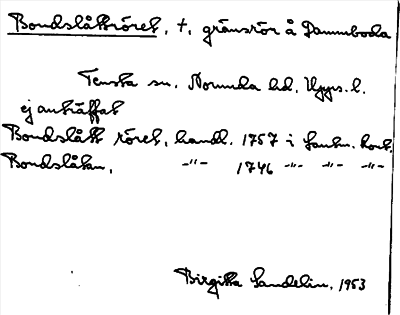 Bondslåttröret, †, gränsrör å Dammboda
Tensta sn. Norunda hd, Upps. l.
ej anträffat
Bondslått röret, handl. 1757 i Lantm. kont.
Bondslåtan, -"- 1746 -"- -"- -"-
Birgitta Sandelin, 1953